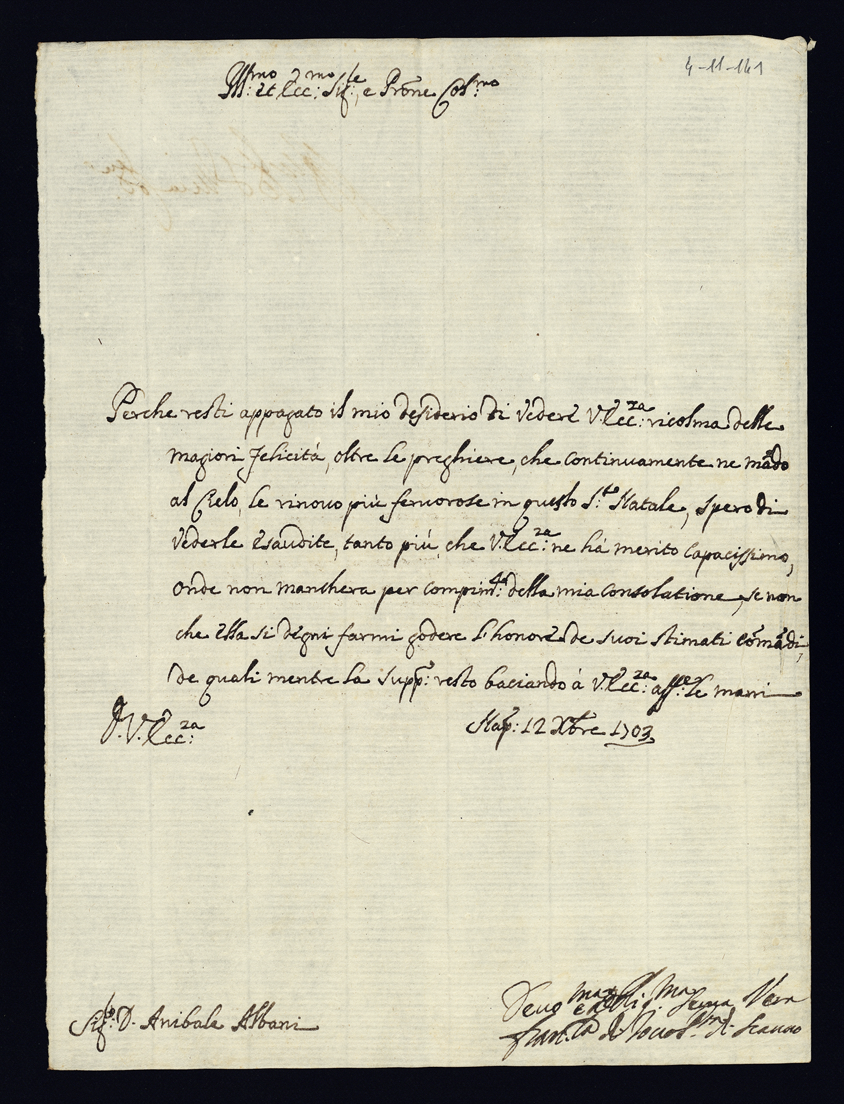 4-11-141
Ill:mo et Ecc:mo Sig:re, e Prone Col:mo
Perche resti appagato il mio desiderio di vedere V. Ecc:za ricolma delle
magiori felicitá, oltre le preghiere, che continuamente ne mãdo
al Cielo, le rinovo piú fervorose in questo S:to Natale, spero di
vederle esaudite, tanto piú, che V. Ecc:za ne há merito capacissimo,
onde non manchera per compim:to della mia consolatione, se non
che essa si degni farmi godere l'honore de suoi stimati comãdi,
de quali mentre la supp:co resto baciando á V. Ecc:za aff:te le mani
D. V. Ecc:za
Nap: 12 Xbre 1703
Sig:r D. Anibale Albani
Devo:ma e Obli:ma Serva Vera